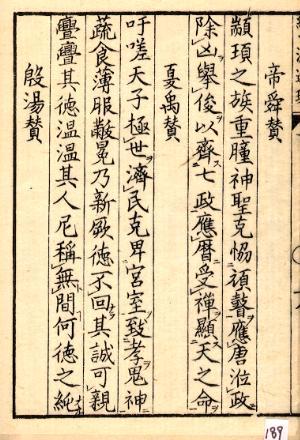 帝舜賛
顓頊之族重瞳神聖克恊頑瞽應唐涖政
除凶舉俊以齊七政應曆受禪顯天之命
夏禹賛
吁嗟天子極世濟民克卑宮室致孝鬼神
蔬食薄服黻冕乃新厥徳不回其誠可親
亹亹其徳温温其人尼稱無間何徳之純
殷湯賛
189